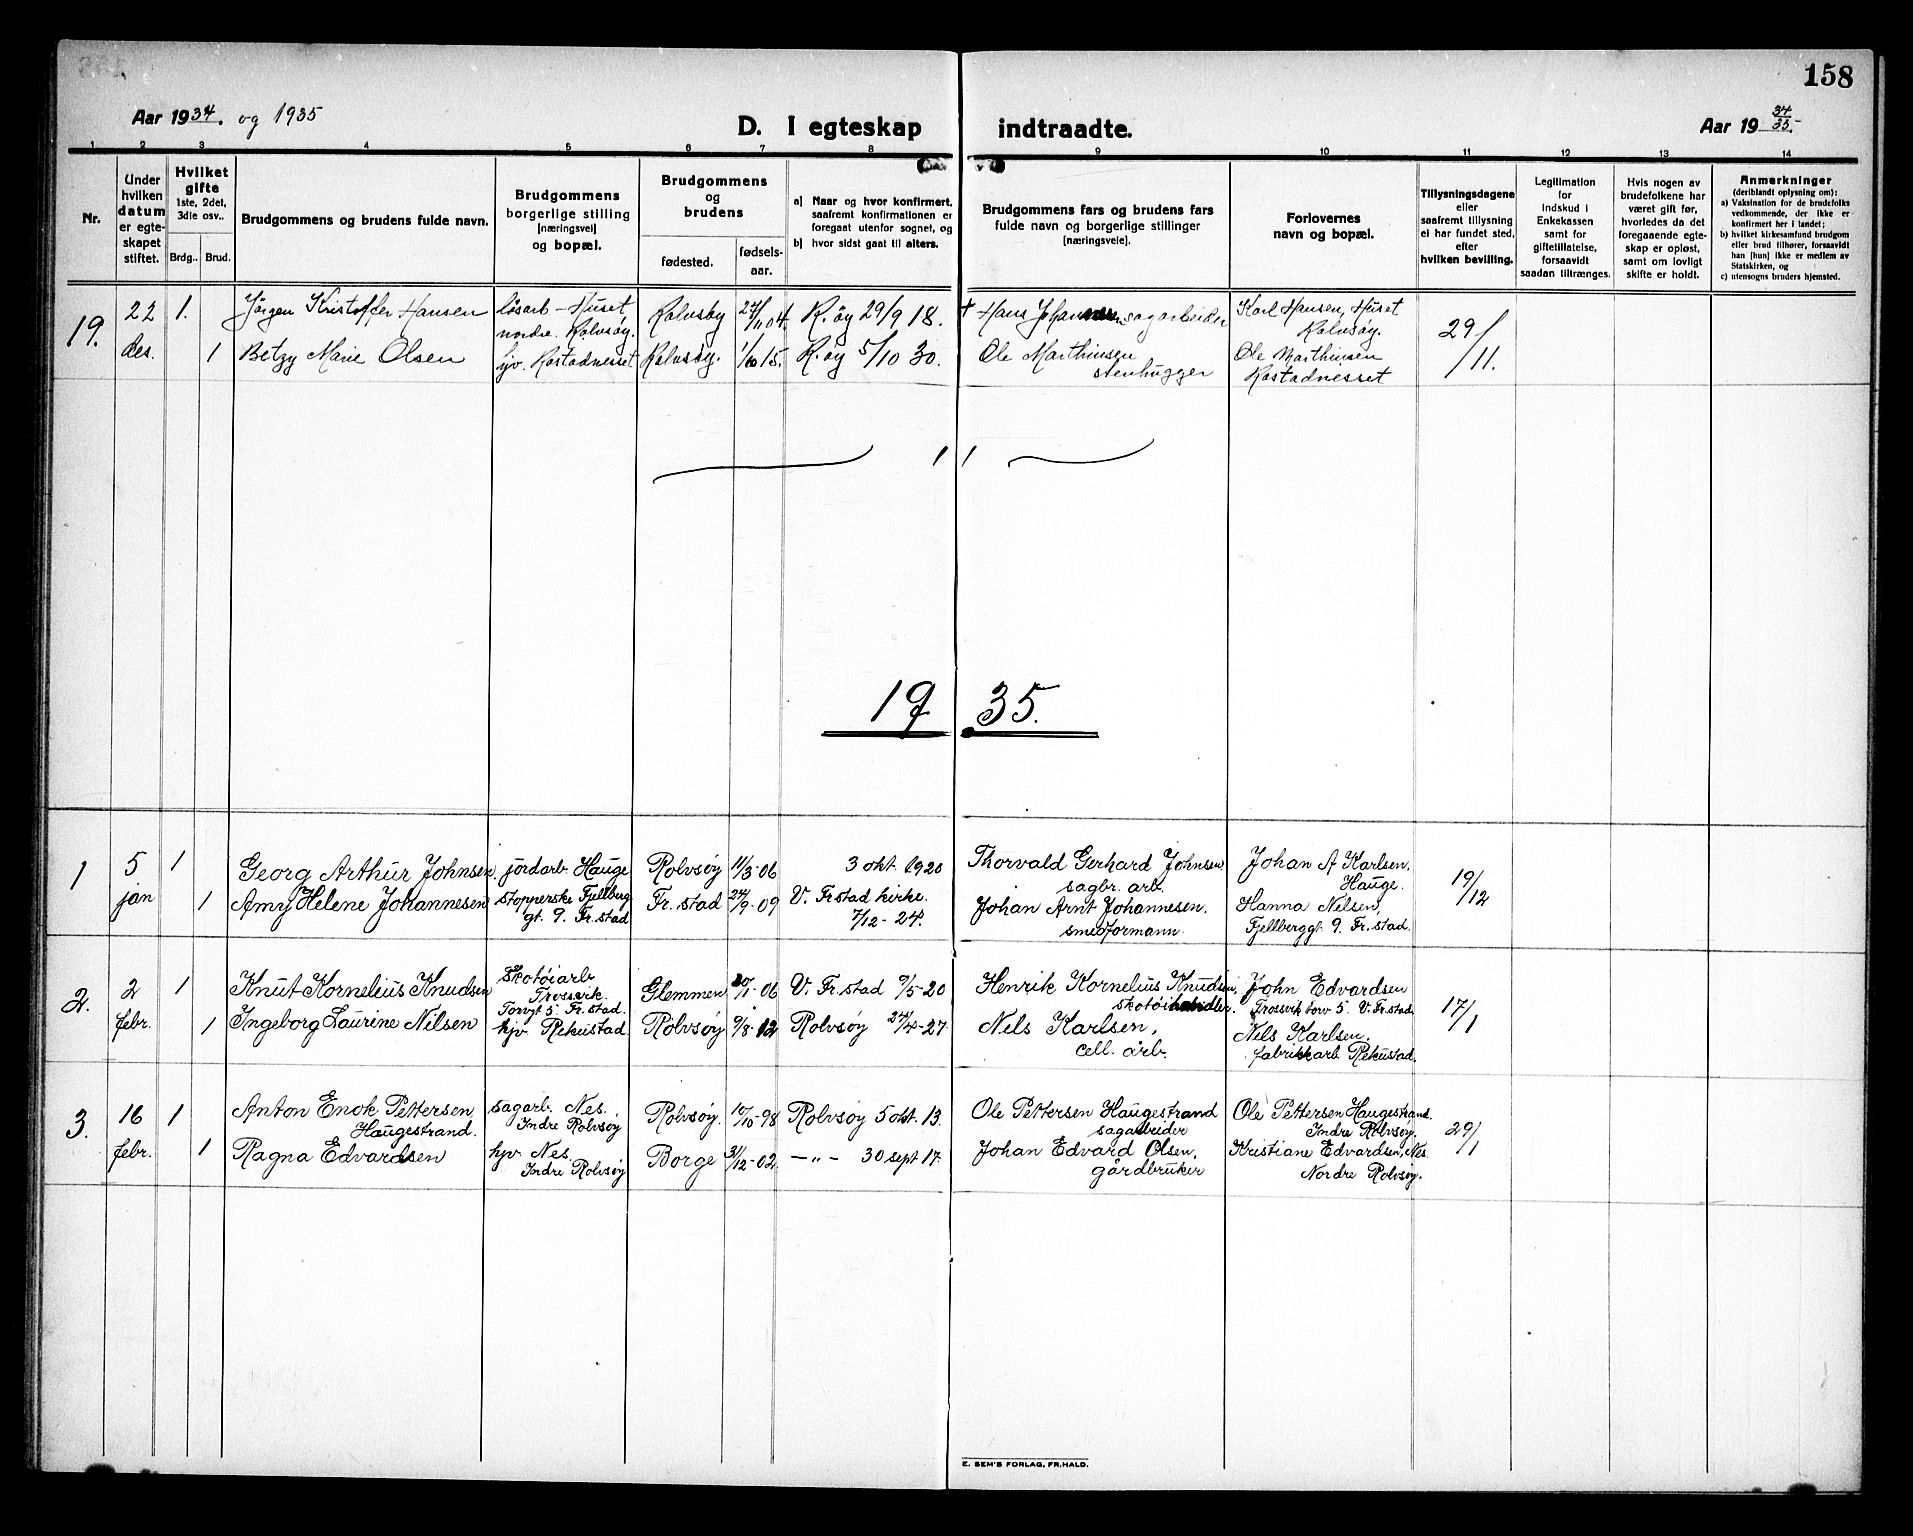 158
Aar 1934. og 1935
D. I egteskap indtraadte.
Aar 19 34/35.
1 2 3 4 5 6 7 8 9 10 11 12 13 14
Nr.
Under
hvilken
datum
er egte-
skapet
stiftet.
Hvilket
gifte
1ste, 2det,
3die osv..
Brdg.. Brud.
Brudgommens og brudens fulde navn.
Brudgommens
borgerlige stilling
[næringsvei]
og bopæl.
Brudgommens
og
brudens
fødested.
fødsels-
aar.
a) Naar og hvor konfirmert,
saafremt konfirmationen er
foregaat utenfor sognet, og
b) hvor sidst gaat til alters.
Brudgommens fars og brudens fars
fulde navn og borgerlige stillinger
[næringsveie].
Forlovernes
navn og bopæl.
Tillysningsdagene
eller
saafremt tillysning
ei har fundet sted,
efter
hvilken bevilling.
Legitimation
for
indskud i
Enkekassen
samt for
giftetillatelse,
forsaavidt
saadan tiltrænges.
Hvis nogen av
brudefolkene har
været gift før,
hvorledes da det
foregaaende egte-
skap er opløst,
samt om lovligt
skifte er holdt.
Anmerkninger
(deriblandt oplysning om):
a) Vaksination for de brudefolks
vedkommende, der ikke er
konfirmert her i landet;
b) hvilket kirkesamfund brudgom
eller brud tilhører, forsaavidt
han [hun] ikke er medlem av
Statskirken, og
c) utensogns bruders hjemsted.
19. 22 1. Jörgen Kristoffer Hansen løsarb - Huset Rolvsöy 24/11 04. R.öy 29/9 18. † Hans Johansen sagarbeider Karl Hansen, Huset
nordre. Rolvsöy. Rolvsöy. 29/11.
des. 1 Betzy Marie Olsen hjv. Rostadnesset Rolvsöy. 1/10 15. R.öy 5/10 30. Ole Marthinsen Ole Marthinsen
stenhugger Rostadnesset
1 1
19 35.
1 5 1 Georg Arthur Johnsen. jordarb Hauge Rolvsöy 11/3-06 3 okt 1920 Thorvald Gerhard Johnsen Johan A Karlsen.
sagbr. arb. Hauge. 19/12
jan 1 Amy Helene Johannesen stopperske Fjellberg Fr.stad 24/9-09 V. Fr.stad kirke. Johan Arnt Johannesen. Hanna Nilsen,
gt. 9. Fr.stad 7/12-24. smedformann. Fjellberggt. 9. Fr.stad.
2. 2 1 Knut Kornelius Knudsen Skotöiarb Glemmen 20/1-06 V. Fr.stad 9/5-20 Henrik Kornelius Knudsen, John Edvardsen
Trossvik. skotöihandler. Trossvik torv 5. V. Fr.stad. 17/1
Torvgt 5. Fr.stad.
febr. 1 Ingeborg Laurine Nilsen hjv Rekustad Rolvsöy 9/8-12 Rolvsöy 24/4-27 Nels Karlsen, Nels Karlsen.
cell. arb. fabrikkarb Rekustad.
3. 16 1 Anton Enok Pettersen, sagarb. Nes. Rolvsöy. 10/10-98 Rolvsöy 5 okt. 13. Ole Pettersen Haugestrand Ole Pettersen Haugestrand.
Haugestrand. Indre Rolvsöy sagarbeider Indre Rolvsöy. 29/1
febr. 1 Ragna Edvardsen hjv Nes. Borge 31/12-02. —"— 30 sept 17. Johan Edvard Olsen, Kristiane Edvardsen, Nes.
Indre Rolvsöy gårdbruker Nordre Rolvsöy.
E. SEM'S FORLAG, FR.HALD.